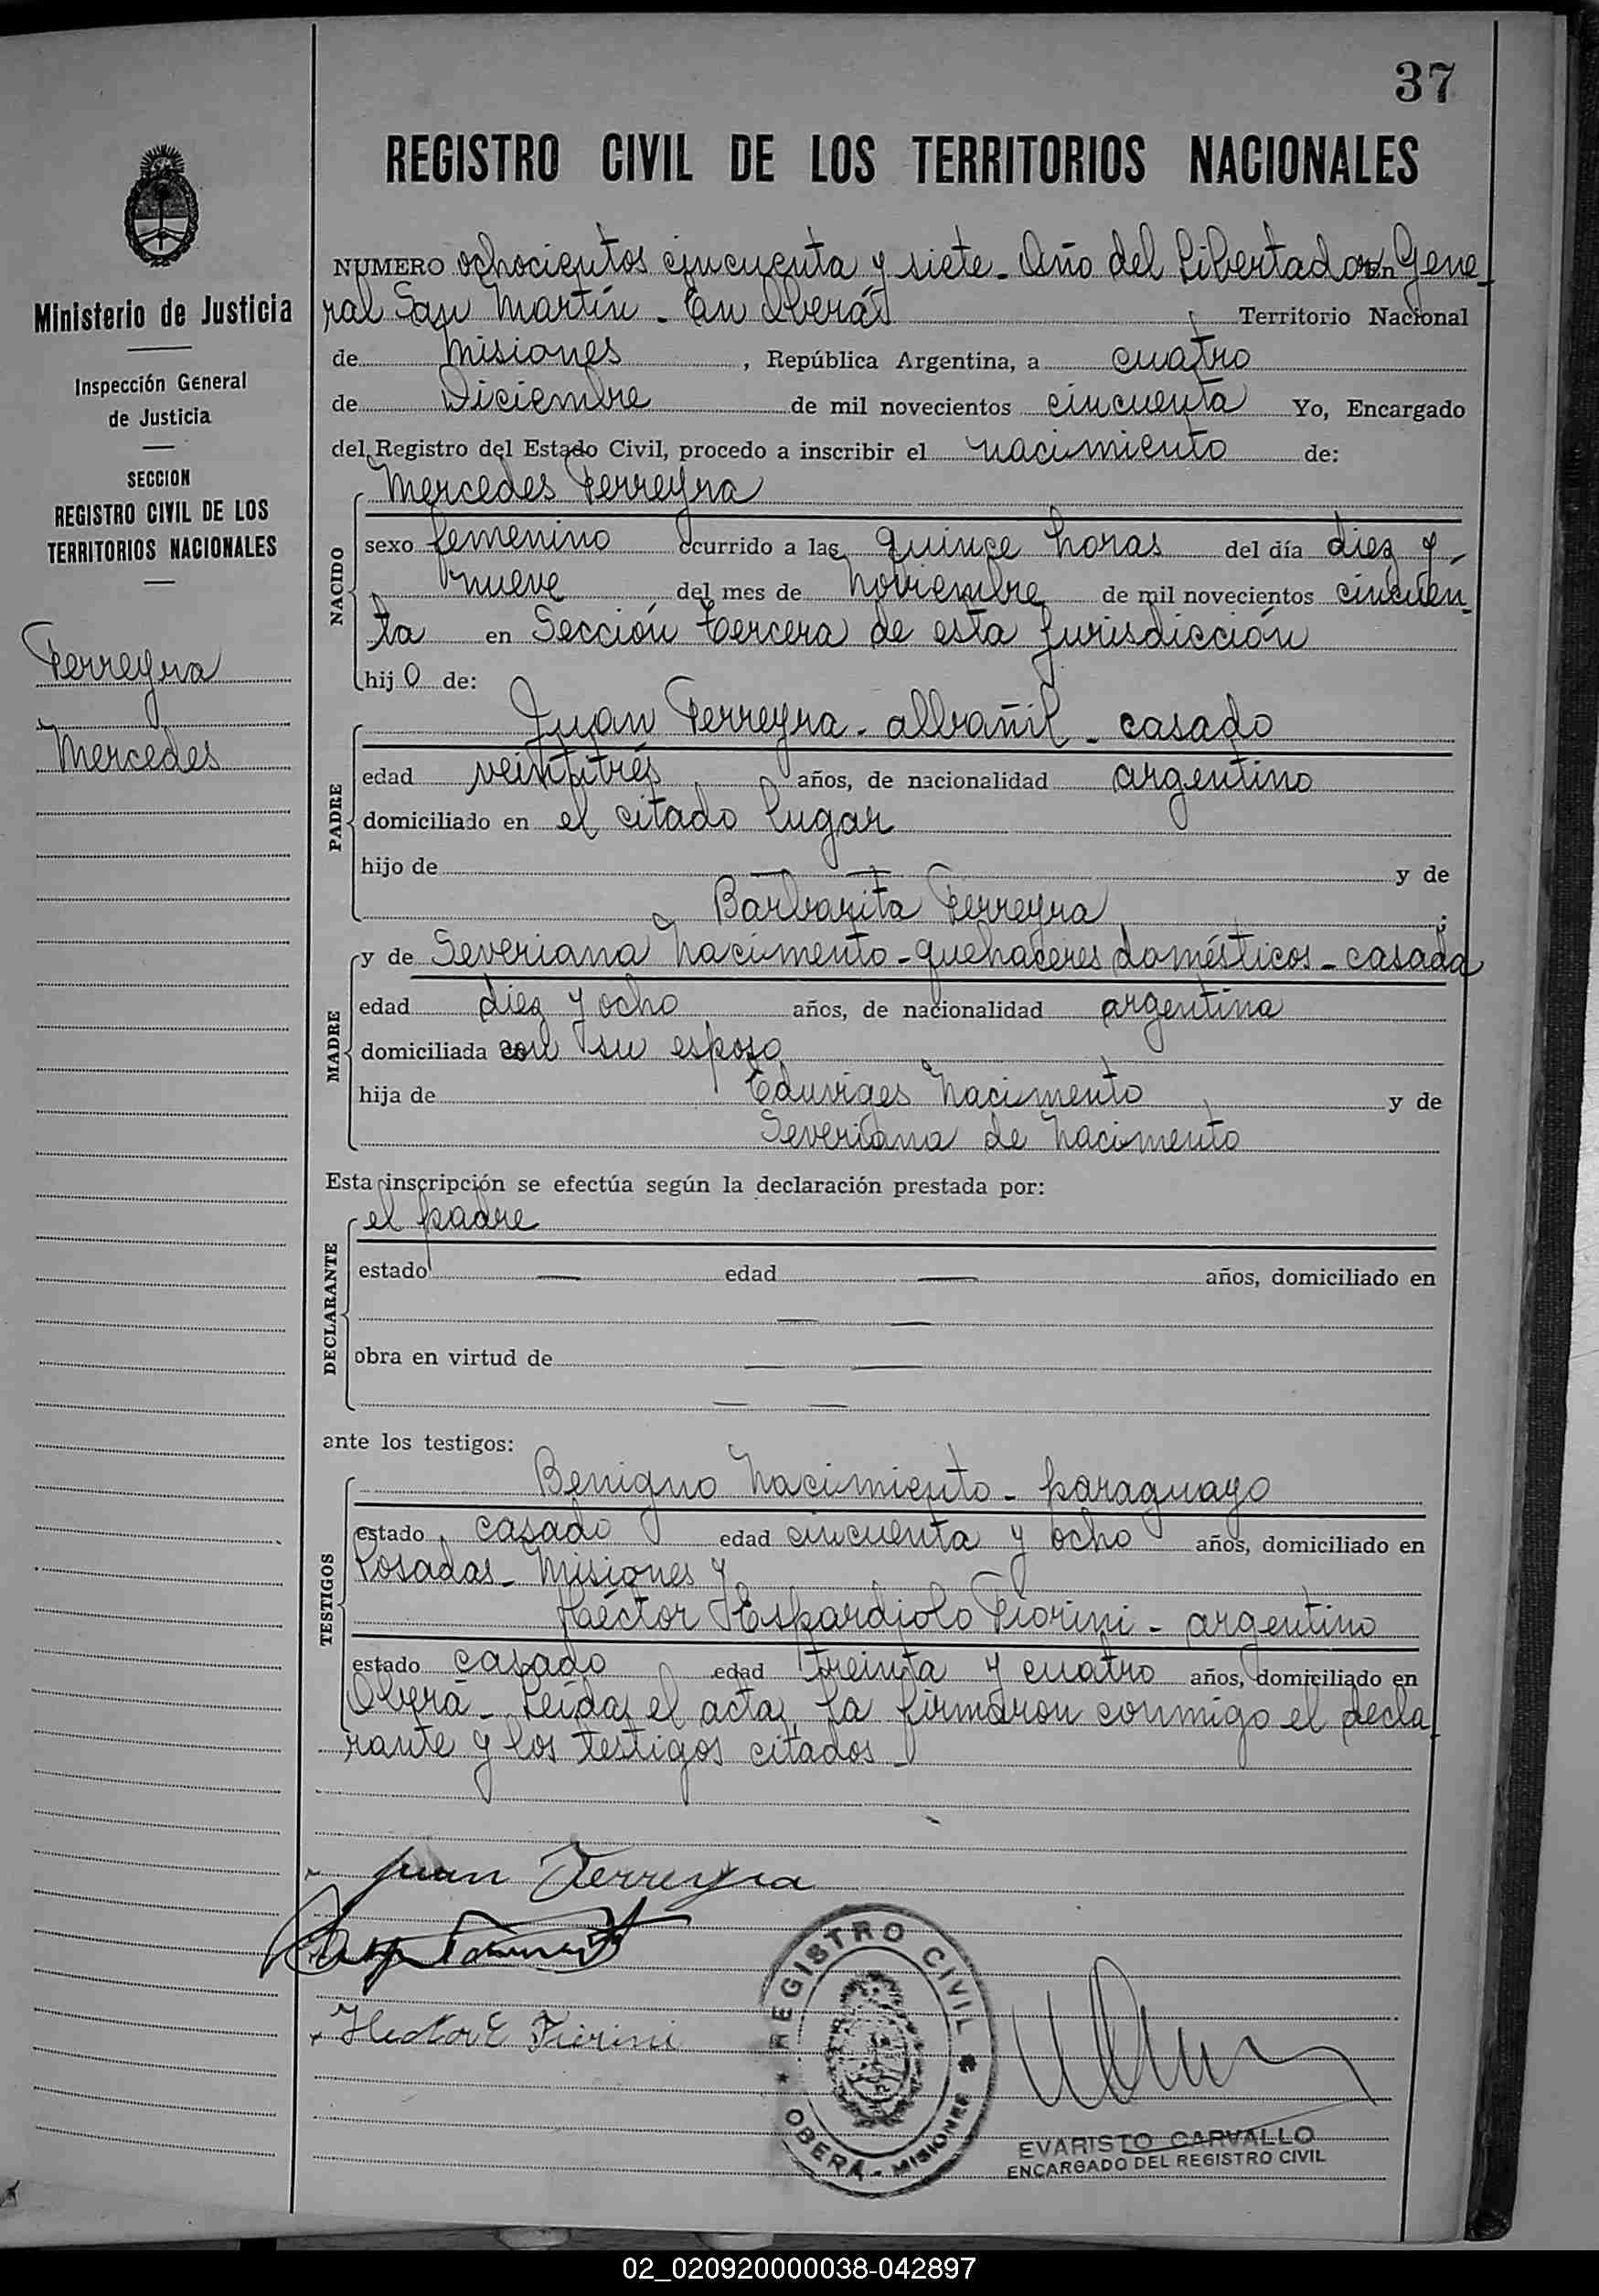 37
REGISTRO CIVIL DE LOS TERRITORIOS NACIONALES
Ministerio de Justicia
Inspección General
de Justicia
SECCION
REGISTRO CIVIL DE LOS
TERRITORIOS NACIONALES
Ferreyra
Mercedes
NUMERO ochocientos cincuenta y siete - Año del Libertador En Gene-
ral San Martín - En Oberá Territorio Nacional
de Misiones, República Argentina, a cuatro
de Diciembre de mil novecientos cincuenta Yo, Encargado
del Registro del Estado Civil, procedo a inscribir el nacimiento de:
NACIDO
Mercedes Ferreyra
sexo femenino ocurrido a las quince horas del día diez y
nueve del mes de noviembre de mil novecientos cincuen-
ta en Sección tercera de esta jurisdicción
hijo de:
PADRE
Juan Ferreyra - albañil - casado
edad veintitrés años, de nacionalidad argentino
domiciliado en el citado lugar
hijo de — — y de
Barbarita Ferreyra;
MADRE
y de Severiana Nacimento - quehaceres domésticos - casada
edad diez y ocho años, de nacionalidad argentina
domiciliada con su esposo
hija de Eduviges Nacimento y de
Severiana de Nacimento
Esta inscripción se efectúa según la declaración prestada por:
DECLARANTE
el padre
estado — edad — años, domiciliado en
— —
obra en virtud de — —
— —
ante los testigos:
TESTIGOS
Benigno Nacimiento - paraguayo
estado casado edad cincuenta y ocho años, domiciliado en
Posadas - Misiones y
Héctor Espardiolo Fiorini - argentino
estado casado edad treinta y cuatro años, domiciliado en
Oberá - Leída el acta, la firmaron conmigo el decla-
rante y los testigos citados -
Juan Ferreyra
Hector E Fiorini
REGISTRO CIVIL
OBERÁ - MISIONES
EVARISTO CARVALLO
ENCARGADO DEL REGISTRO CIVIL
02_020920000038-042897